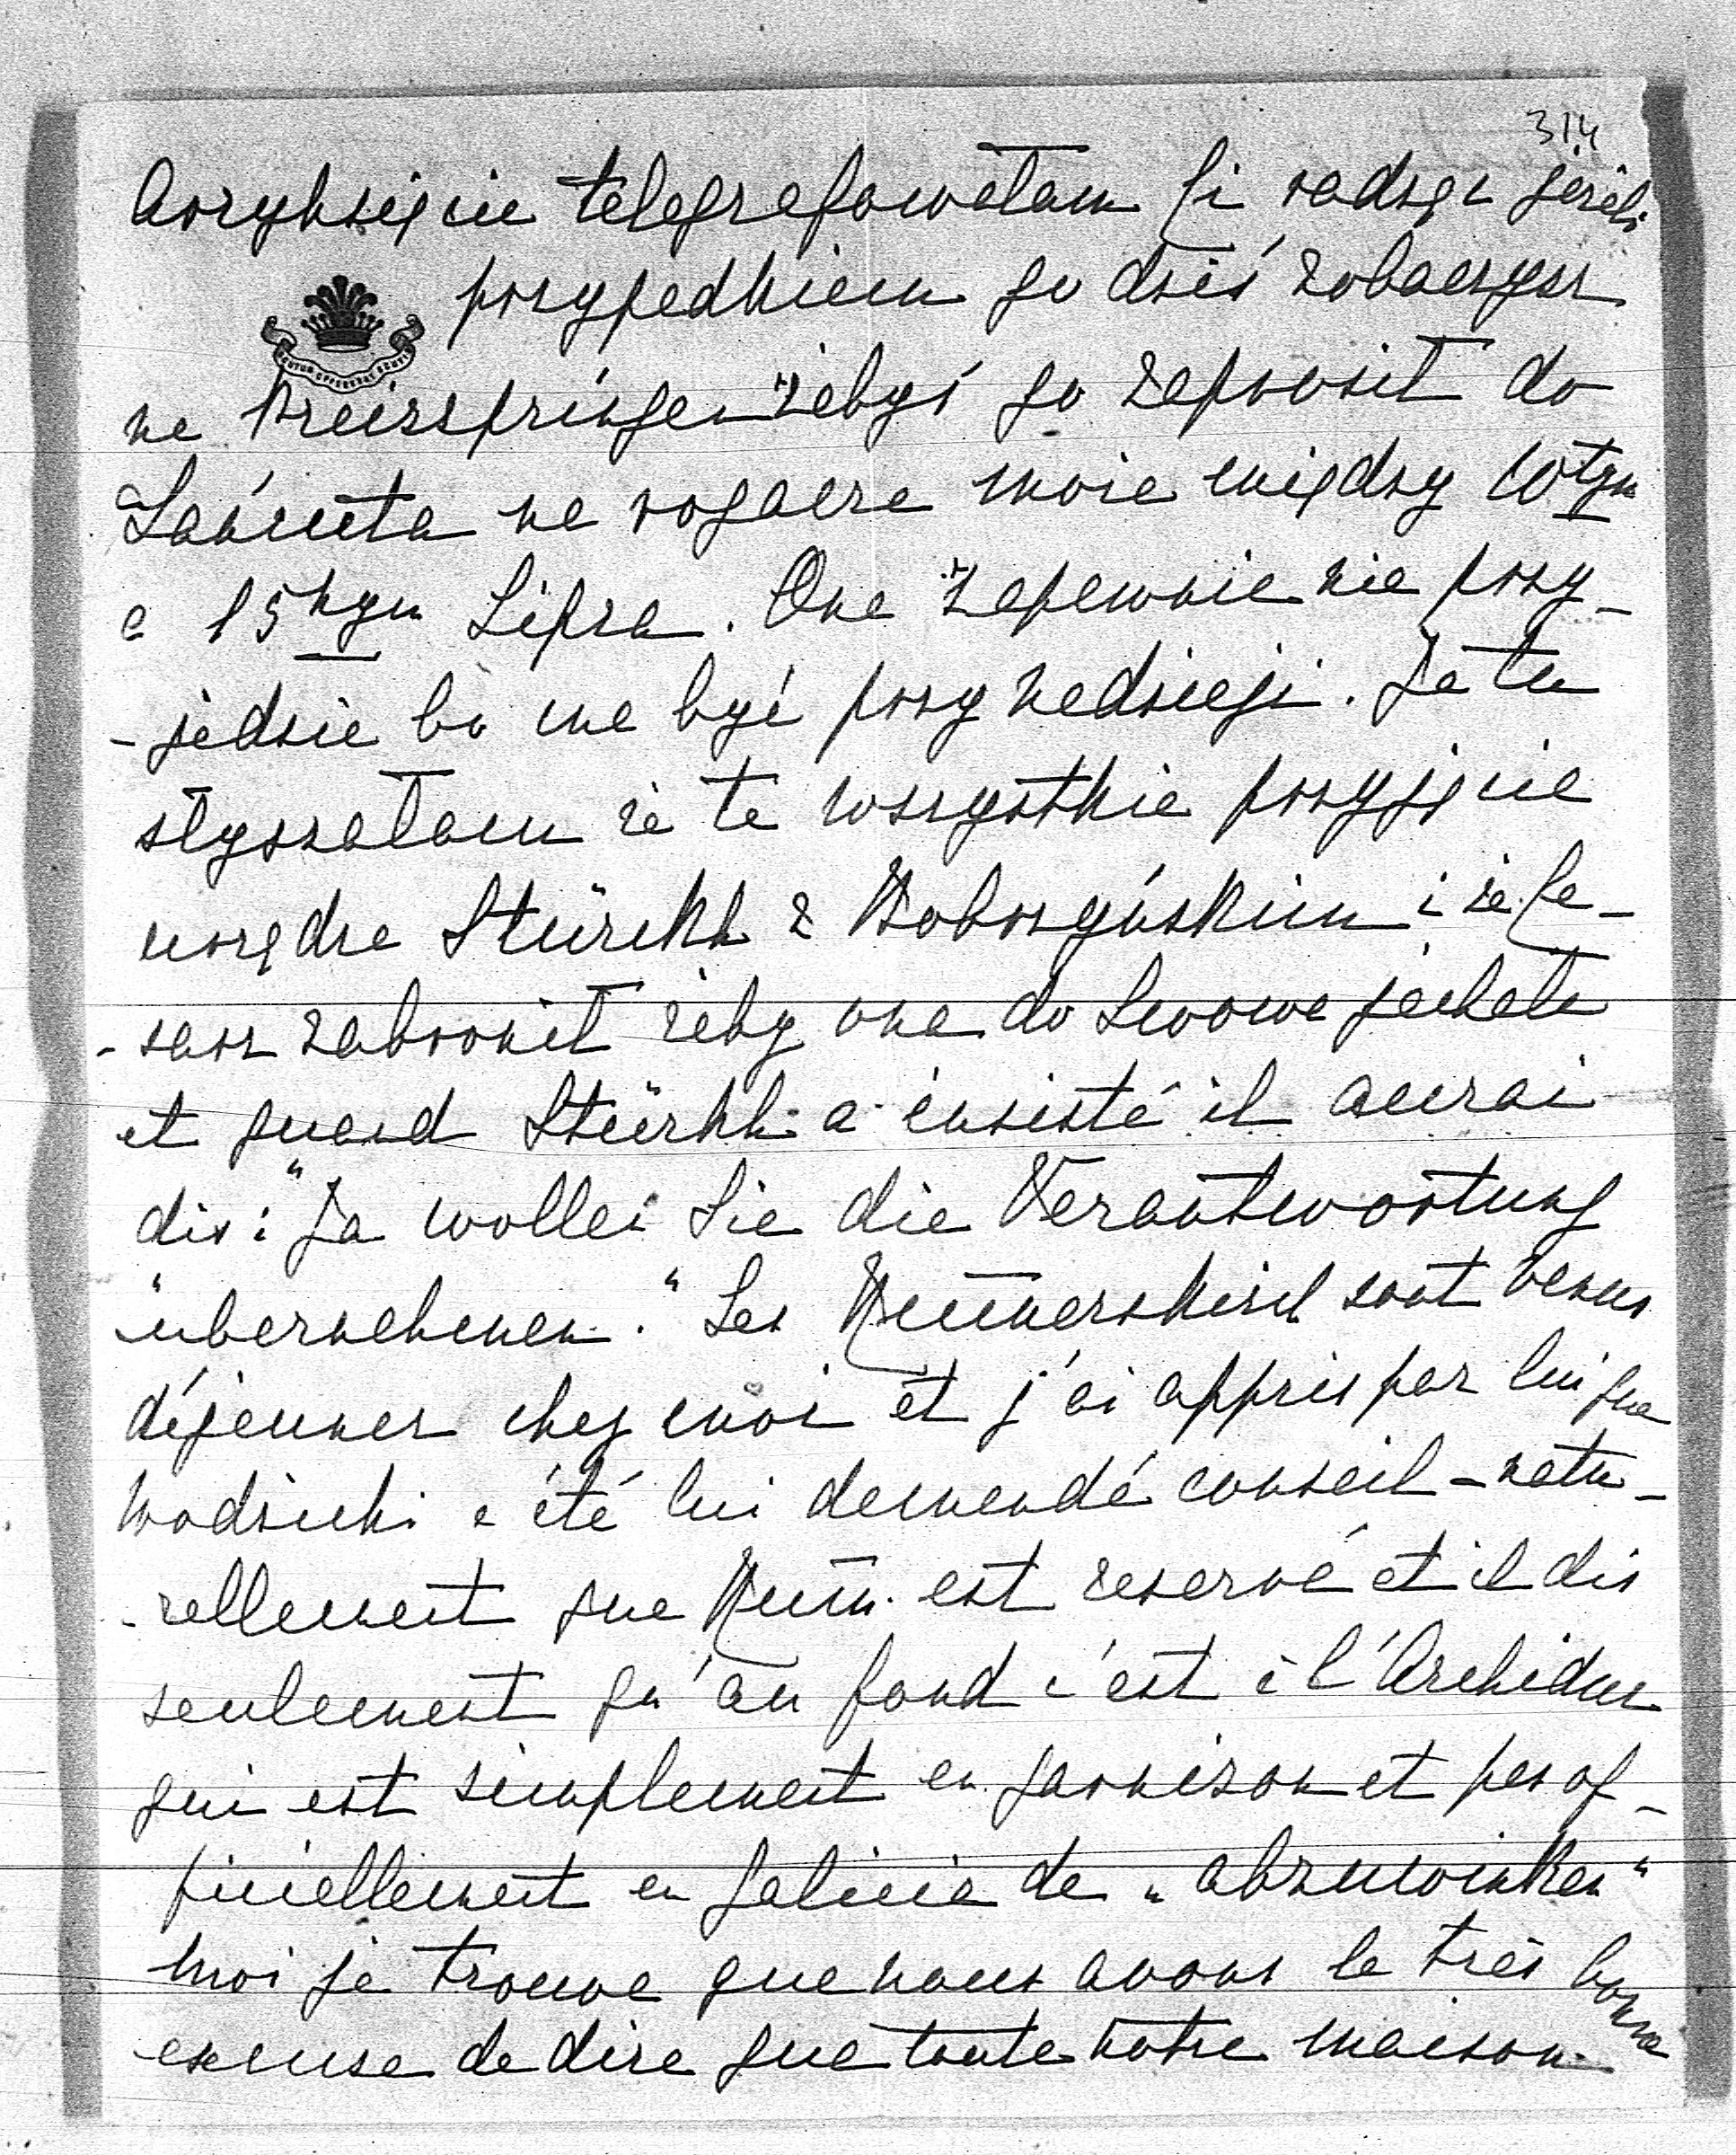 314
Arcyksięcie telegrafowałam Ci radząc jeżeli
przypadkiem go dziś zobaczysz
na Preisspringen żebyś go zaprosił do
Łańcuta na rogacze moie między 10tym
a 15nym Lipca. Ona zapewnie nie przy-
-jedzie bo ma być przy nadzieji. Ja tu
słyszałam że te wszystkie przyjęcie
urządza Stürckh z Bobrzyńskim i że Ce-
-sarz zabronił żeby ona do Lwowa jechała
et quand Stürkh a insisté il aurai
dis: "Ja wollen Sie die Verantwortung
übernehmen." Les Kinnerskirch sont venus
déjeuner chez moi et j'ai appris par lui que
Wodzicki a été lui demandé conseil - natu-
-rellement que est reservé et il dis
seulement qu'au fond c'est à l'Archiduc
qui est simplement en garnison et pas of-
ficiellement en Galicie de "abzuwinken"
moi je trouve que nous avons la très bonne
excuse de dire que toute notre maison